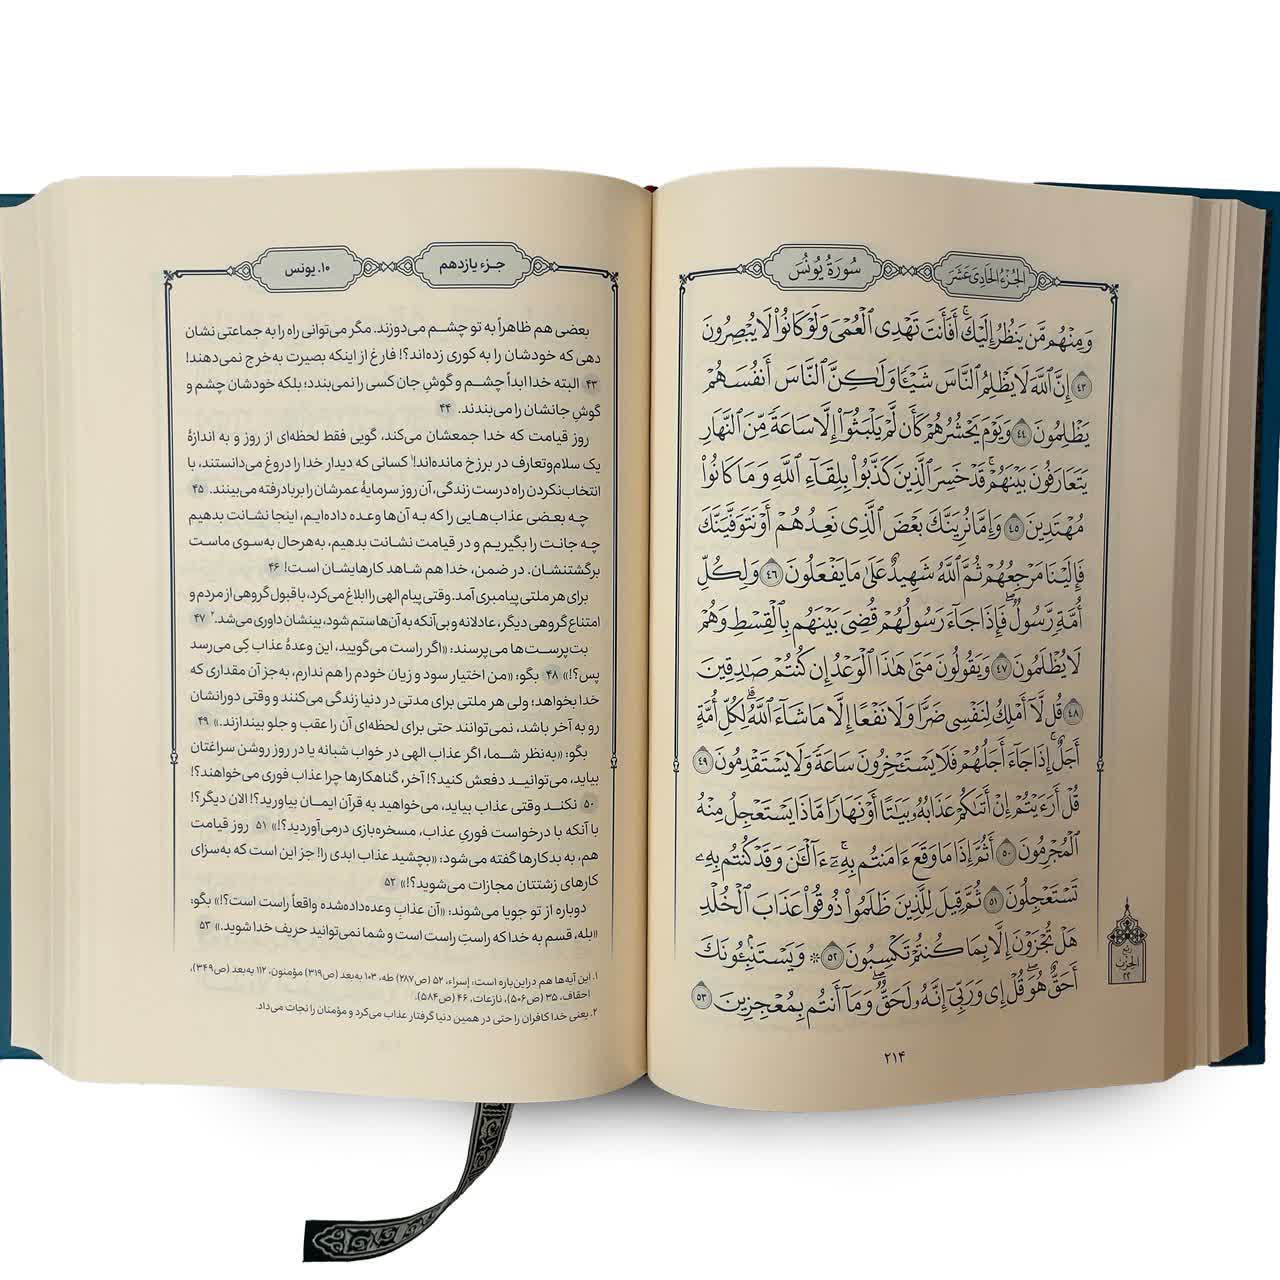 الجُزءُ الحَادِی عَشَرَ
سُورَةُ يُونُسَ
وَمِنْهُم مَّن يَنظُرُ إِلَيْكَ ۚ أَفَأَنتَ تَهْدِى ٱلْعُمْىَ وَلَوْ كَانُوا۟ لَا يُبْصِرُونَ
٤٣ إِنَّ ٱللَّهَ لَا يَظْلِمُ ٱلنَّاسَ شَيْـًٔا وَلَـٰكِنَّ ٱلنَّاسَ أَنفُسَهُمْ
يَظْلِمُونَ ٤٤ وَيَوْمَ يَحْشُرُهُمْ كَأَن لَّمْ يَلْبَثُوٓا۟ إِلَّا سَاعَةً مِّنَ ٱلنَّهَارِ
يَتَعَارَفُونَ بَيْنَهُمْ ۚ قَدْ خَسِرَ ٱلَّذِينَ كَذَّبُوا۟ بِلِقَآءِ ٱللَّهِ وَمَا كَانُوا۟
مُهْتَدِينَ ٤٥ وَإِمَّا نُرِيَنَّكَ بَعْضَ ٱلَّذِى نَعِدُهُمْ أَوْ نَتَوَفَّيَنَّكَ
فَإِلَيْنَا مَرْجِعُهُمْ ثُمَّ ٱللَّهُ شَهِيدٌ عَلَىٰ مَا يَفْعَلُونَ ٤٦ وَلِكُلِّ
أُمَّةٍ رَّسُولٌ ۖ فَإِذَا جَآءَ رَسُولُهُمْ قُضِىَ بَيْنَهُم بِٱلْقِسْطِ وَهُمْ
لَا يُظْلَمُونَ ٤٧ وَيَقُولُونَ مَتَىٰ هَـٰذَا ٱلْوَعْدُ إِن كُنتُمْ صَـٰدِقِينَ
٤٨ قُل لَّآ أَمْلِكُ لِنَفْسِى ضَرًّا وَلَا نَفْعًا إِلَّا مَا شَآءَ ٱللَّهُ ۗ لِكُلِّ أُمَّةٍ
أَجَلٌ ۚ إِذَا جَآءَ أَجَلُهُمْ فَلَا يَسْتَـْٔخِرُونَ سَاعَةً وَلَا يَسْتَقْدِمُونَ ٤٩
قُلْ أَرَءَيْتُمْ إِنْ أَتَىٰكُمْ عَذَابُهُۥ بَيَـٰتًا أَوْ نَهَارًا مَّاذَا يَسْتَعْجِلُ مِنْهُ
ٱلْمُجْرِمُونَ ٥٠ أَثُمَّ إِذَا مَا وَقَعَ ءَامَنتُم بِهِۦٓ ۚ ءَآلْـَٔـٰنَ وَقَدْ كُنتُم بِهِۦ
تَسْتَعْجِلُونَ ٥١ ثُمَّ قِيلَ لِلَّذِينَ ظَلَمُوا۟ ذُوقُوا۟ عَذَابَ ٱلْخُلْدِ
هَلْ تُجْزَوْنَ إِلَّا بِمَا كُنتُمْ تَكْسِبُونَ ٥٢ ۞ وَيَسْتَنۢبِـُٔونَكَ
أَحَقٌّ هُوَ ۖ قُلْ إِى وَرَبِّىٓ إِنَّهُۥ لَحَقٌّ ۖ وَمَآ أَنتُم بِمُعْجِزِينَ ٥٣
ربع
الحزب
٢٢
۲۱۴
جزء یازدهم
۱۰. یونس
بعضی هم ظاهراً به تو چشم می‌دوزند. مگر می‌توانی راه را به جماعتی نشان
دهی که خودشان را به کوری زده‌اند؟! فارغ از اینکه بصیرت به‌خرج نمی‌دهند!
۴۳ البته خدا ابداً چشم و گوشِ جان کسی را نمی‌بندد؛ بلکه خودشان چشم و
گوشِ جانشان را می‌بندند. ۴۴
روز قیامت که خدا جمعشان می‌کند، گویی فقط لحظه‌ای از روز و به اندازهٔ
یک سلام‌وتعارف در برزخ مانده‌اند!۱ کسانی که دیدار خدا را دروغ می‌دانستند، با
انتخاب‌نکردن راه درست زندگی، آن روز سرمایهٔ عمرشان را بربادرفته می‌بینند. ۴۵
چه بعضی عذاب‌هایی را که به آن‌ها وعده داده‌ایم، اینجا نشانت بدهیم
چه جانت را بگیریم و در قیامت نشانت بدهیم، به‌هرحال به‌سوی ماست
برگشتنشان. در ضمن، خدا هم شاهد کارهایشان است! ۴۶
برای هر ملتی پیامبری آمد. وقتی پیام الهی را ابلاغ می‌کرد، با قبول گروهی از مردم و
امتناع گروهی دیگر، عادلانه و بی‌آنکه به آن‌ها ستم شود، بینشان داوری می‌شد.۲ ۴۷
بت‌پرست‌ها می‌پرسند: «اگر راست می‌گویید، این وعدهٔ عذاب کِی می‌رسد
پس؟!» ۴۸ بگو: «من اختیار سود و زیان خودم را هم ندارم، به‌جز آن مقداری که
خدا بخواهد؛ ولی هر ملتی برای مدتی در دنیا زندگی می‌کنند و وقتی دورانشان
رو به آخر باشد، نمی‌توانند حتی برای لحظه‌ای آن را عقب و جلو بیندازند.» ۴۹
بگو: «به‌نظر شما، اگر عذاب الهی در خواب شبانه یا در روز روشن سراغتان
بیاید، می‌توانید دفعش کنید؟! آخر، گناهکارها چرا عذاب فوری می‌خواهند؟!
۵۰ نکند وقتی عذاب بیاید، می‌خواهید به قرآن ایمان بیاورید؟! الان دیگر؟!
با آنکه با درخواست فوریِ عذاب، مسخره‌بازی درمی‌آوردید؟!» ۵۱ روز قیامت
هم، به بدکارها گفته می‌شود: «بچشید عذاب ابدی را! جز این است که به‌سزای
کارهای زشتتان مجازات می‌شوید؟!» ۵۲
دوباره از تو جویا می‌شوند: «آن عذابِ وعده‌داده‌شده واقعاً راست است؟!» بگو:
«بله، قسم به خدا که راستِ راست است و شما نمی‌توانید حریف خدا شوید.» ۵۳
۱. این آیه‌ها هم دراین‌باره است: اِسراء، ۵۲ (ص۲۸۷) طه، ۱۰۳ به‌بعد (ص۳۱۹) مؤمنون، ۱۱۲ به‌بعد (ص۳۴۹)،
احقاف، ۳۵ (ص۵۰۶)، نازعات، ۴۶ (ص۵۸۴).
۲. یعنی خدا کافران را حتی در همین دنیا گرفتار عذاب می‌کرد و مؤمنان را نجات می‌داد.